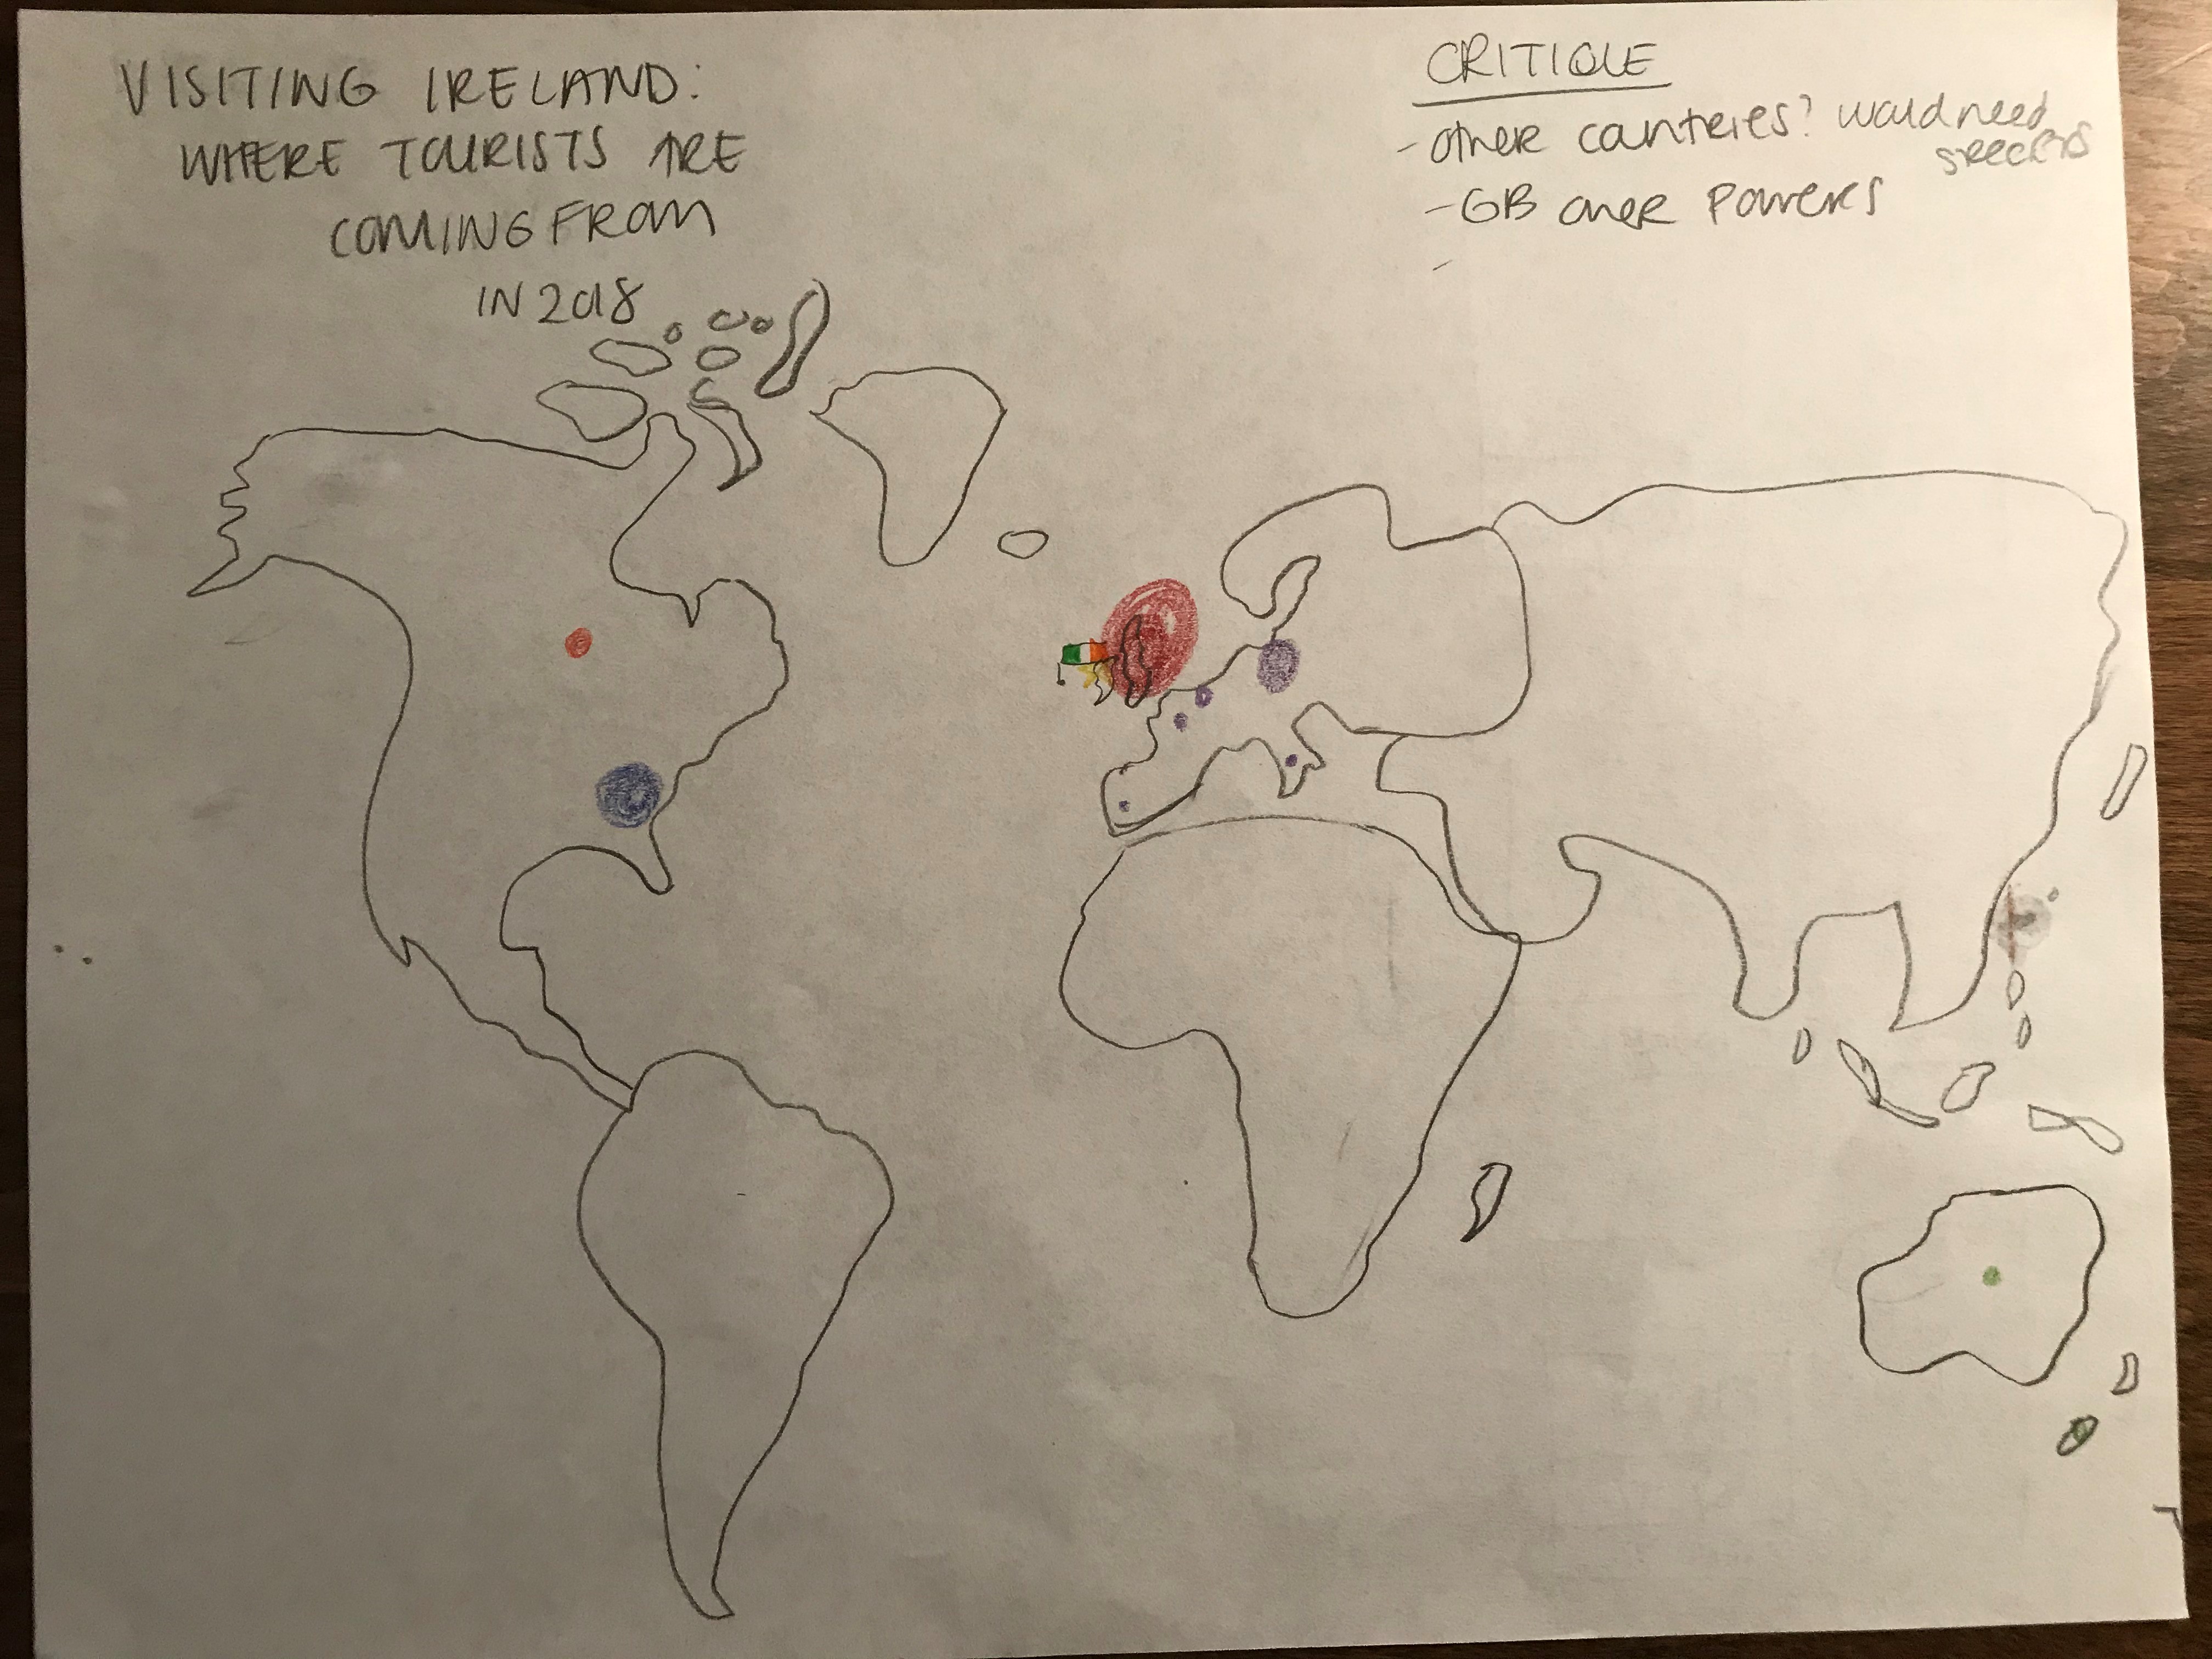 VISITING IRELAND:
WHERE TOURISTS ARE
COMING FROM
IN 2018
CRITIQUE
- other countries? would need
specifics
- GB over powers
-